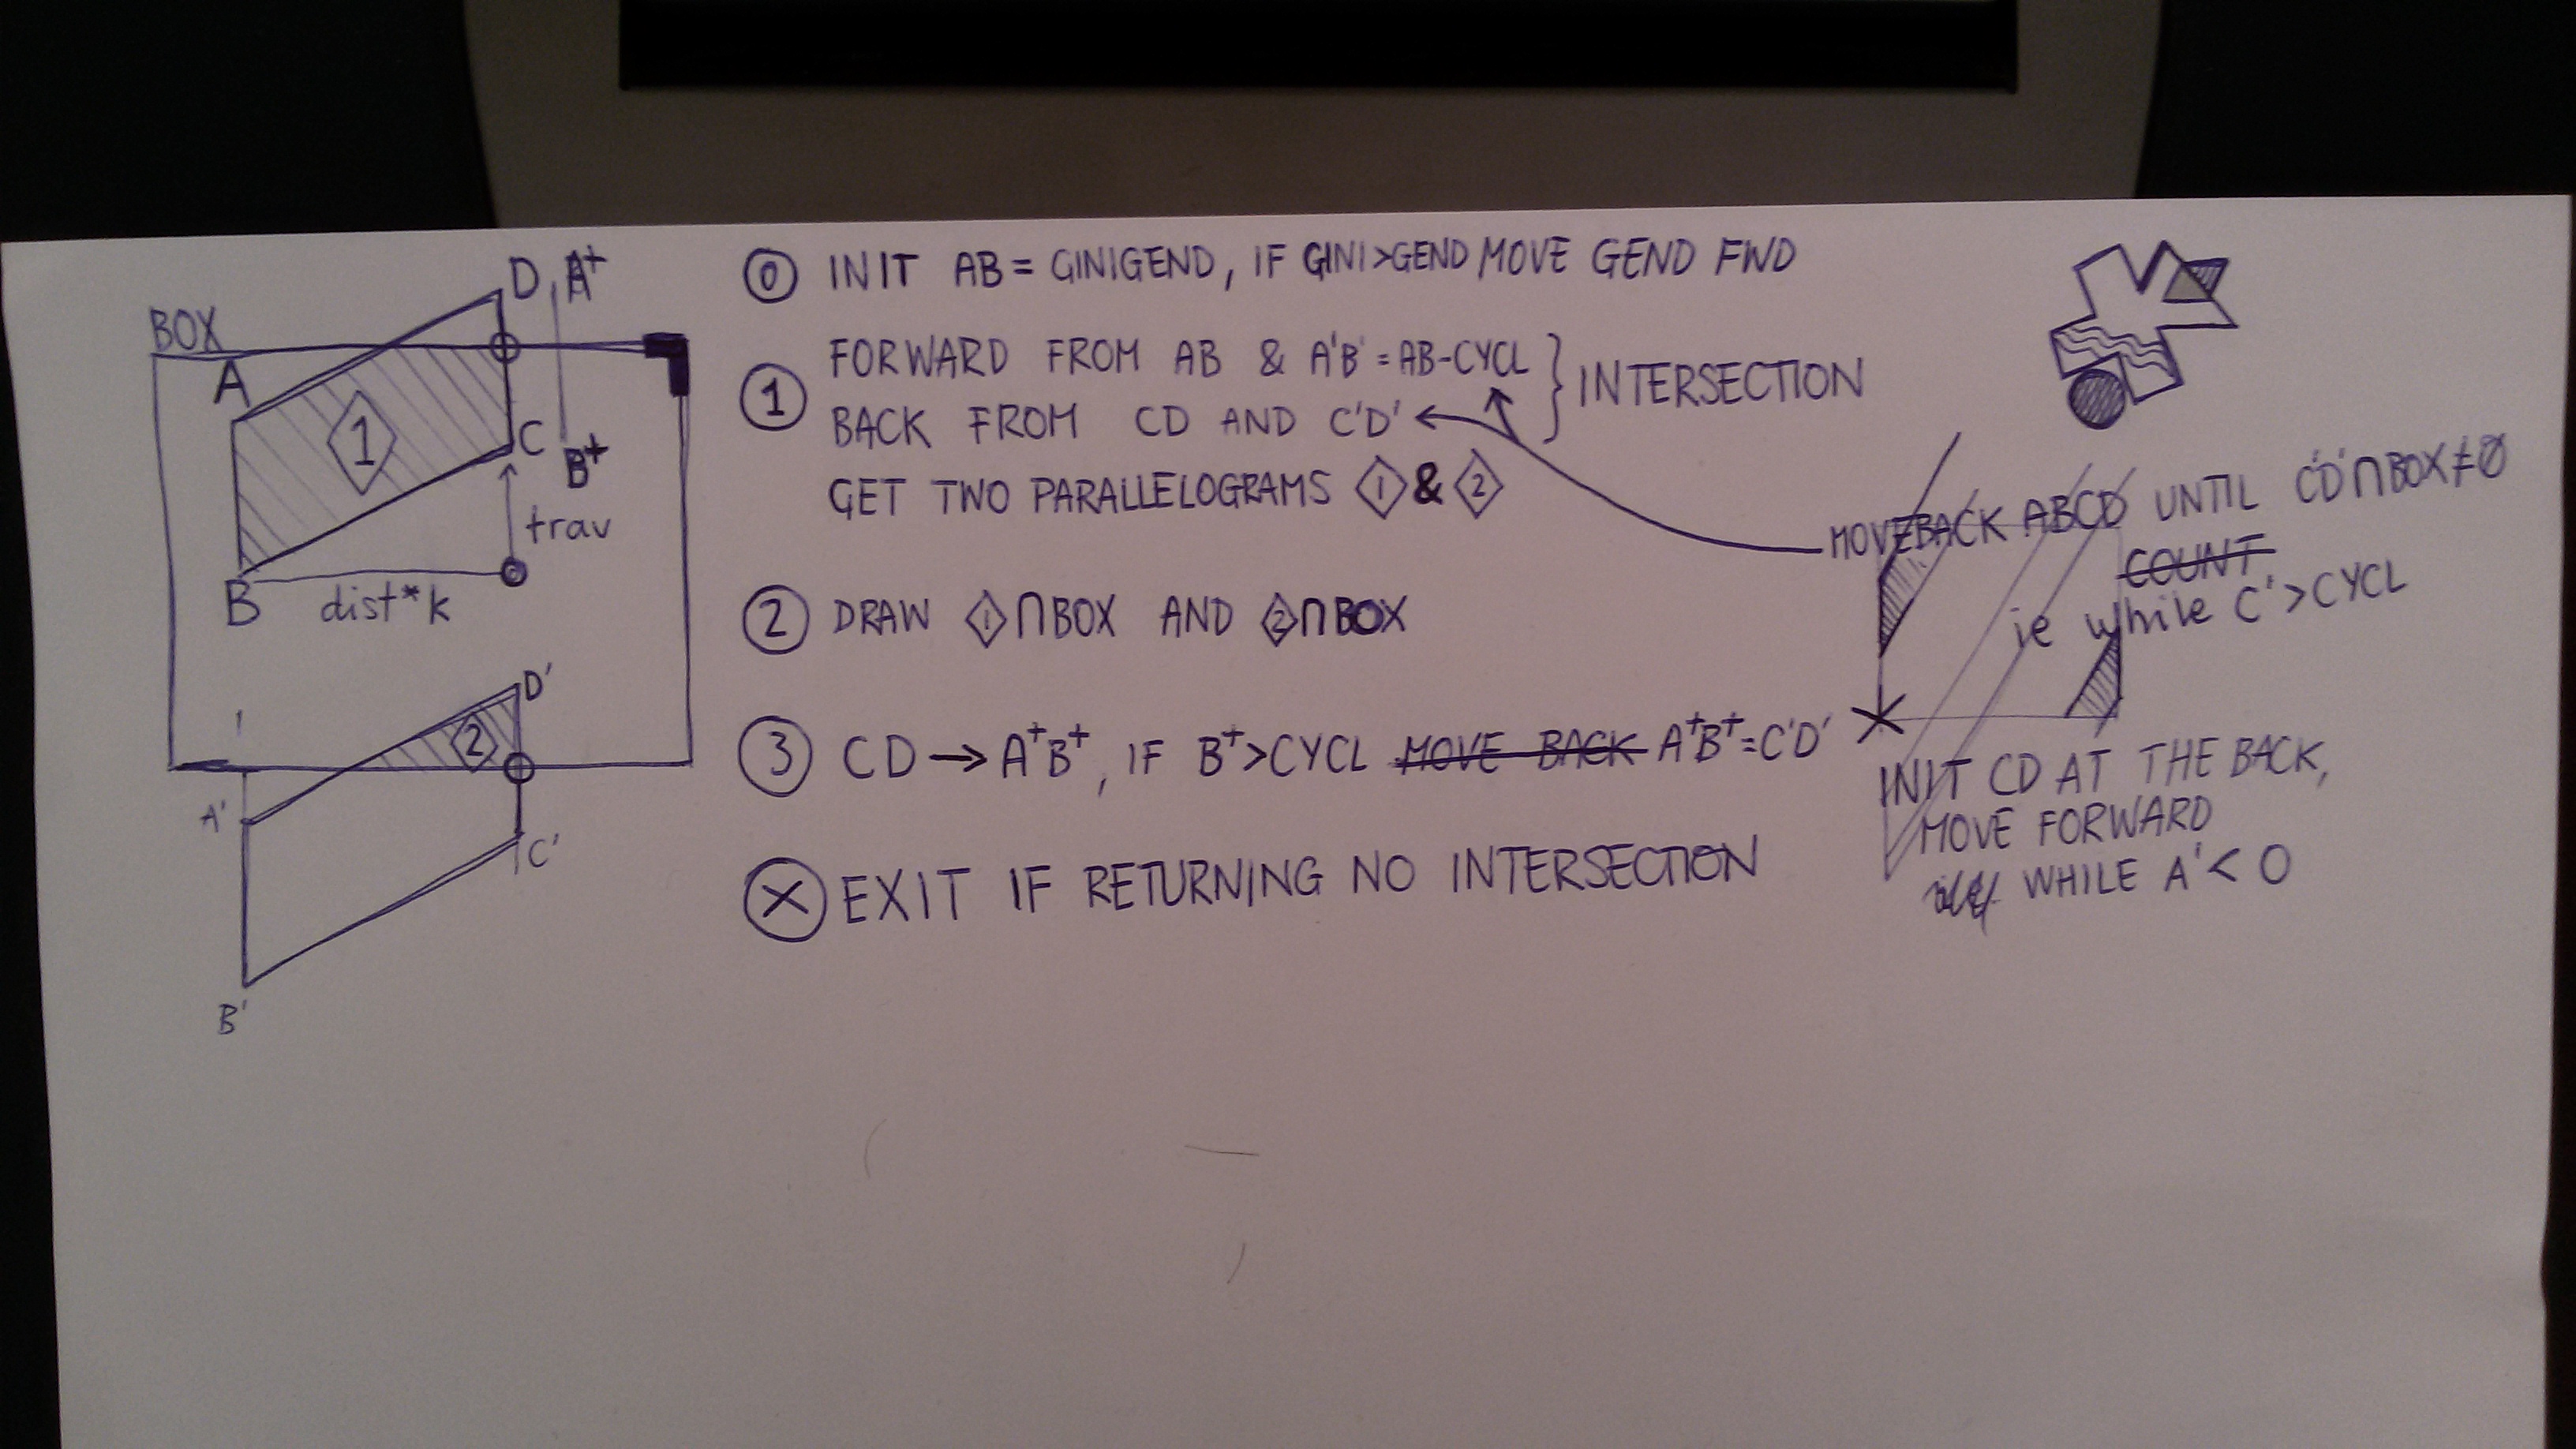 BOX
A
D
A+
1
C
B+
trav
B
dist*k
D'
2
A'
C'
B'
0 INIT AB = GINIGEND, IF GINI>GEND MOVE GEND FWD
1 FORWARD FROM AB & A'B' = AB-CYCL } INTERSECTION
BACK FROM CD AND C'D'
GET TWO PARALLELOGRAMS 1 & 2
2 DRAW 1∩BOX AND 2∩BOX
3 CD → A+B+, IF B+>CYCL MOVE BACK A+B+=C'D'
X EXIT IF RETURNING NO INTERSECTION
MOVEBACK ABCD UNTIL C'D'∩BOX≠∅
COUNT
ie while C'>CYCL
INIT CD AT THE BACK,
MOVE FORWARD
WHILE A'< 0